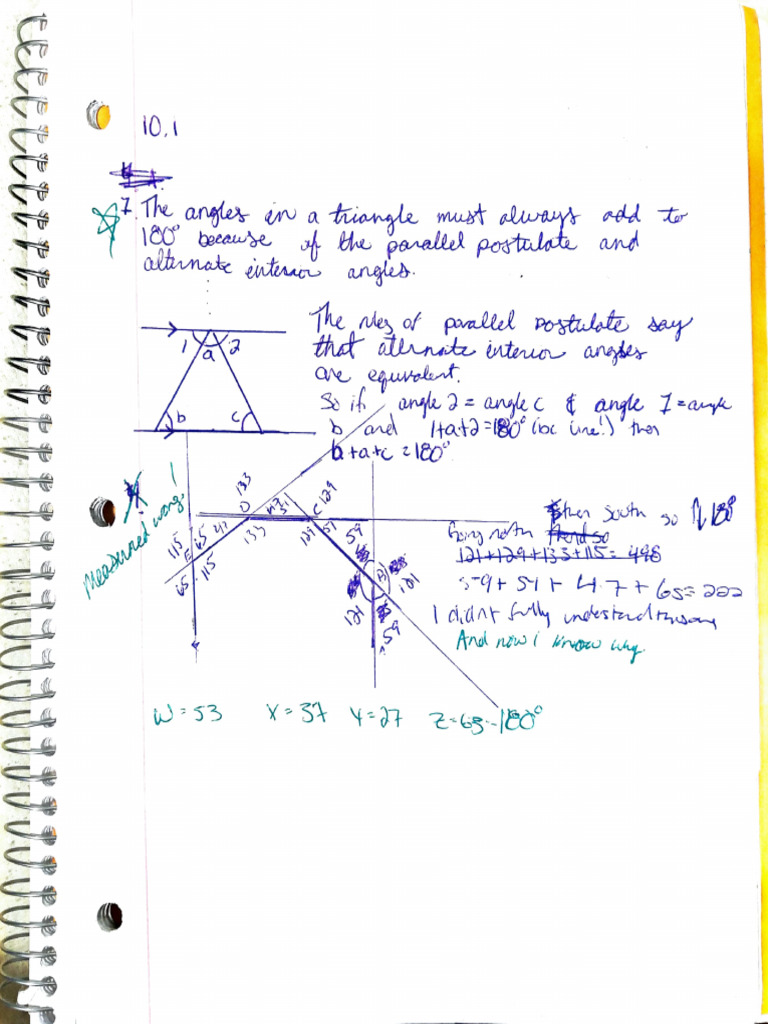 10.1
7. The angles in a triangle must always add to
180° because of the parallel postulate and
alternate interior angles.
The rules of parallel postulate say
that alternate interior angles
are equivalent.
So if angle 2 = angle c & angle 1 = angle
b and 1+a+2=180° (bc line!) then
b+a+c=180°
1 a 2
b c
Measured wrong!
133
D
C 129
133
129
59
115
65
E
65 115
B
121
121
59
Going north then South so 180°
121+129+133+115=498
59+51+47+65=222
I didn't fully understand
And now i know why.
W=53 X=37 Y=27 Z=63 - 180°